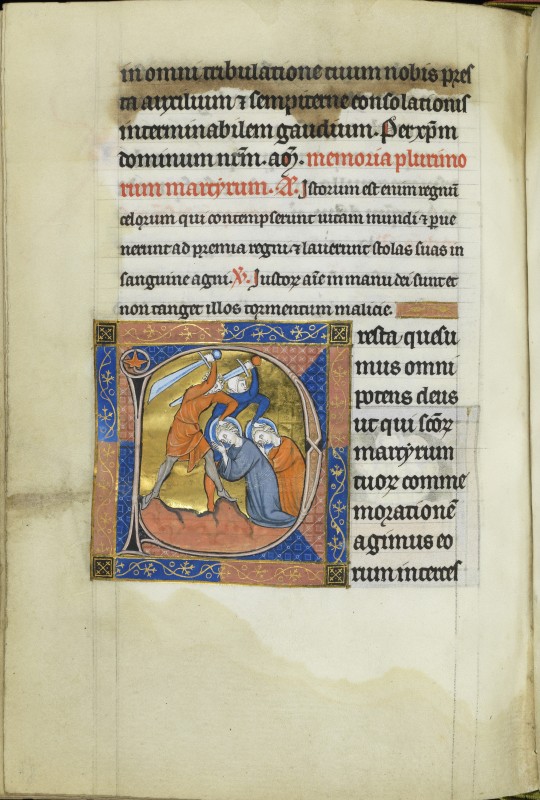 in omni tribulatione tuum nobis pres
ta auxilium ⁊ sempiterne consolationis
interminabilem gaudium. Per xp̄m
dominum nr̄m. am̄. memoria plurimo
rum martyrum. A. Istorum est enim regnū
celorum qui contempserunt uitam mundi ⁊ p̱ue
nerunt ad premia regni. ⁊ lauerunt stolas suas in
sanguine agni. V. Iustoꝝ aīe in manu dei sunt et
non tanget illos tormentum malicie.
Presta quesu
mus omni
potens deus
ut qui sc̄oꝝ
martyrum
tuoꝝ comme
morationē
agimus eo
rum interces